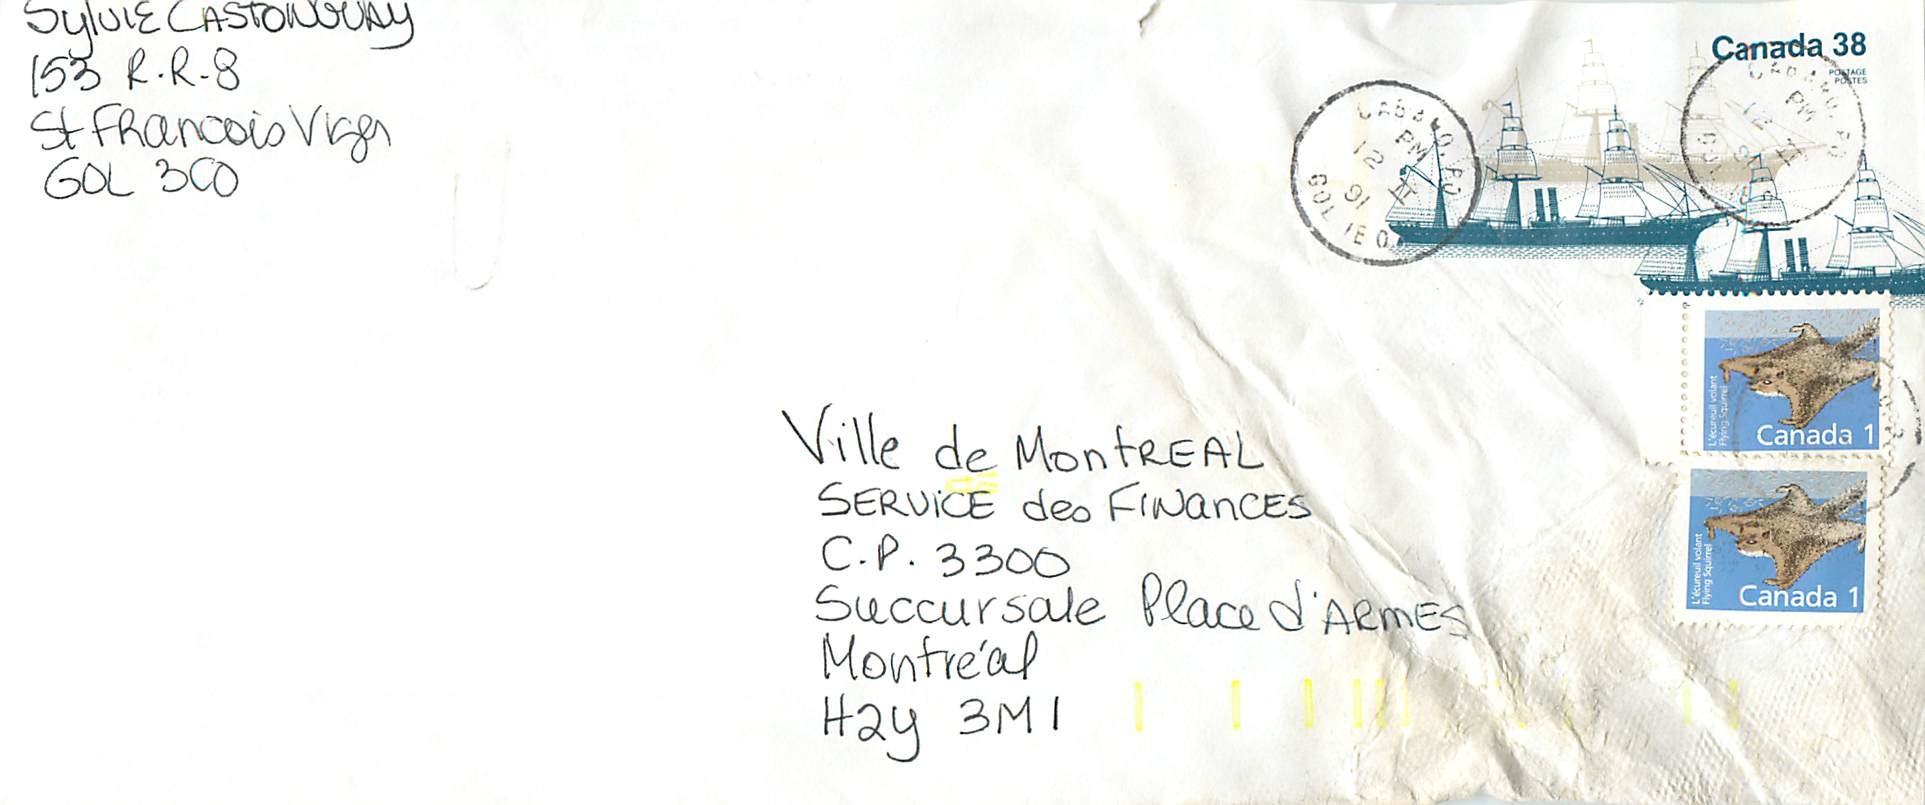 Sylvie CASTONGUAY
153 R.R-8
St FRancois Viger
GOL 3CO
Canada 38
POSTAGE
POSTES
CABANO. PQ
PM
12 II
91
GOL 1E0
Ville de MontREAL
SERVICE des FINANCES
C.P. 3300
Succursale Place d'ARMES
Montréal
H2Y 3M1
L'écureuil volant
Flying Squirrel
Canada 1
L'écureuil volant
Flying Squirrel
Canada 1